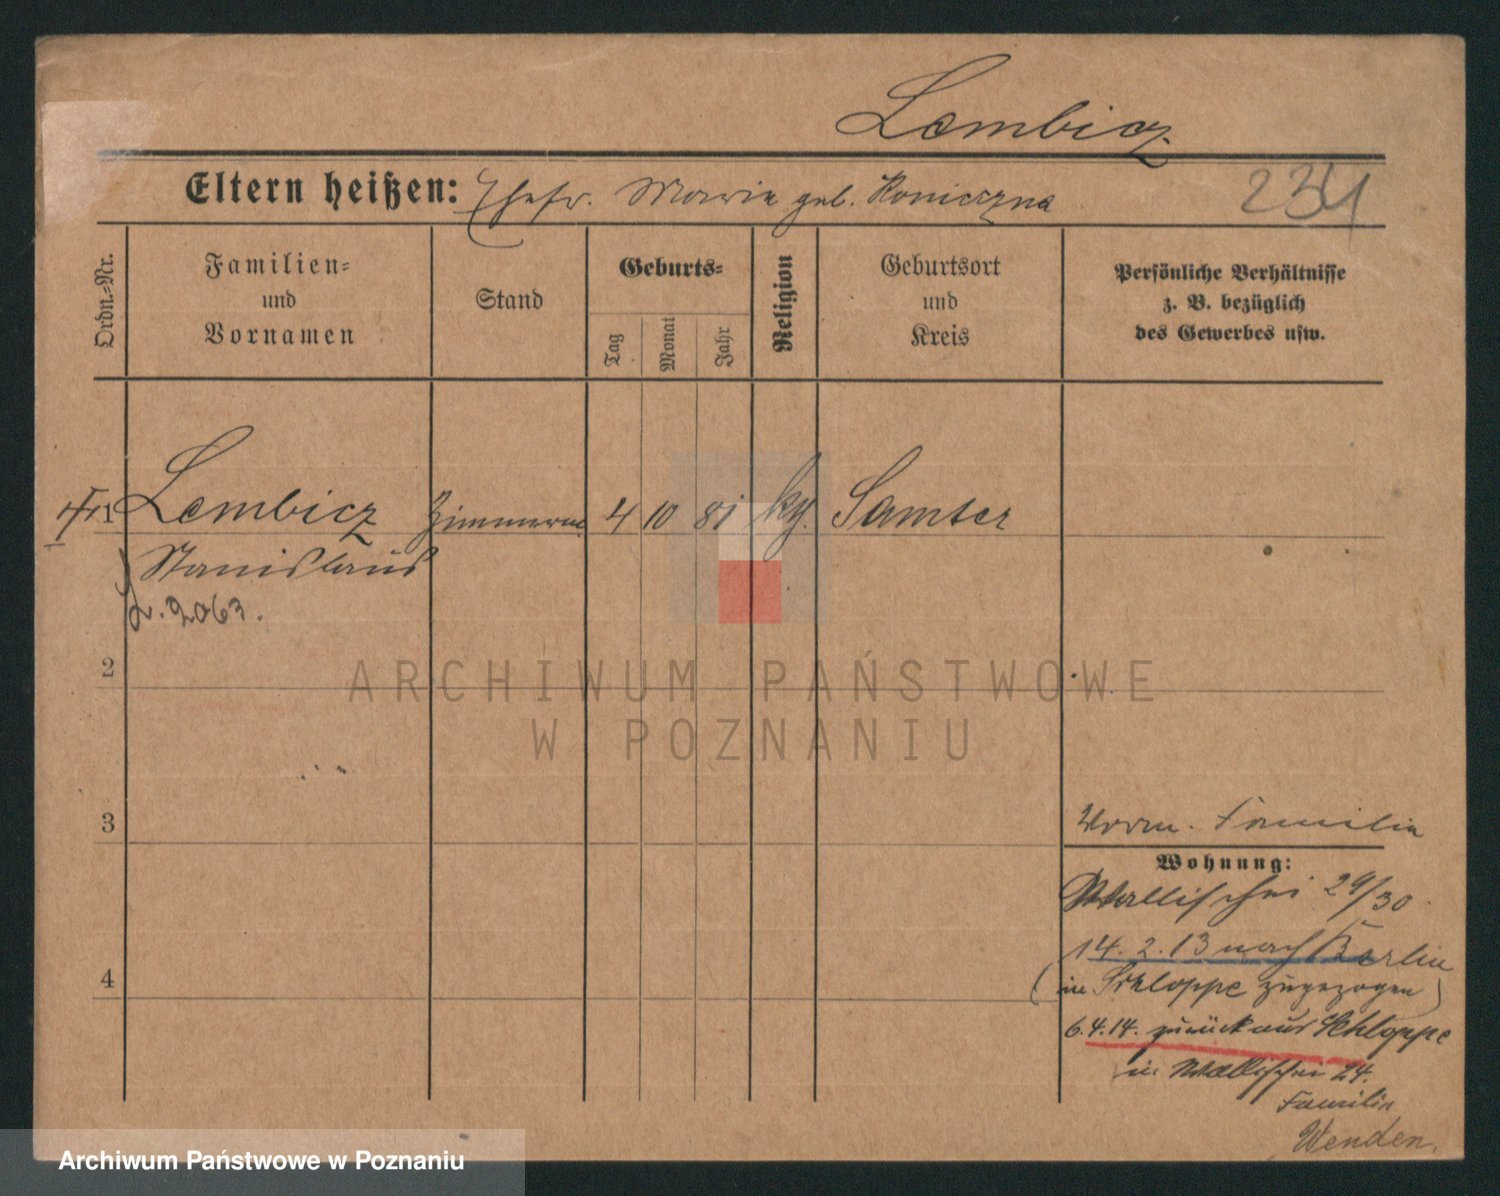 Lembicz
Eltern heißen: Ehefr. Marie geb. Koniczna
234
Ordn.-Nr.
Familien-
und
Vornamen
Stand
Geburts-
Tag
Monat
Jahr
Religion
Geburtsort
und
Kreis
Persönliche Verhältnisse
z. B. bezüglich
des Gewerbes usw.
1 Lembicz Zimmerm 4 10 81 kg. Samter
Stanislaus
L. 2063.
2
ARCHIWUM PAŃSTWOWE
W POZNANIU
3
Familie
Wohnung:
Wallischei 29/30
14. 2. 13 nach Berlin
(in Schloppe zugezogen)
4
6.4.14. zurück aus Schloppe
in Wallischei 24.
Familie
Wenden.
Archiwum Państwowe w Poznaniu